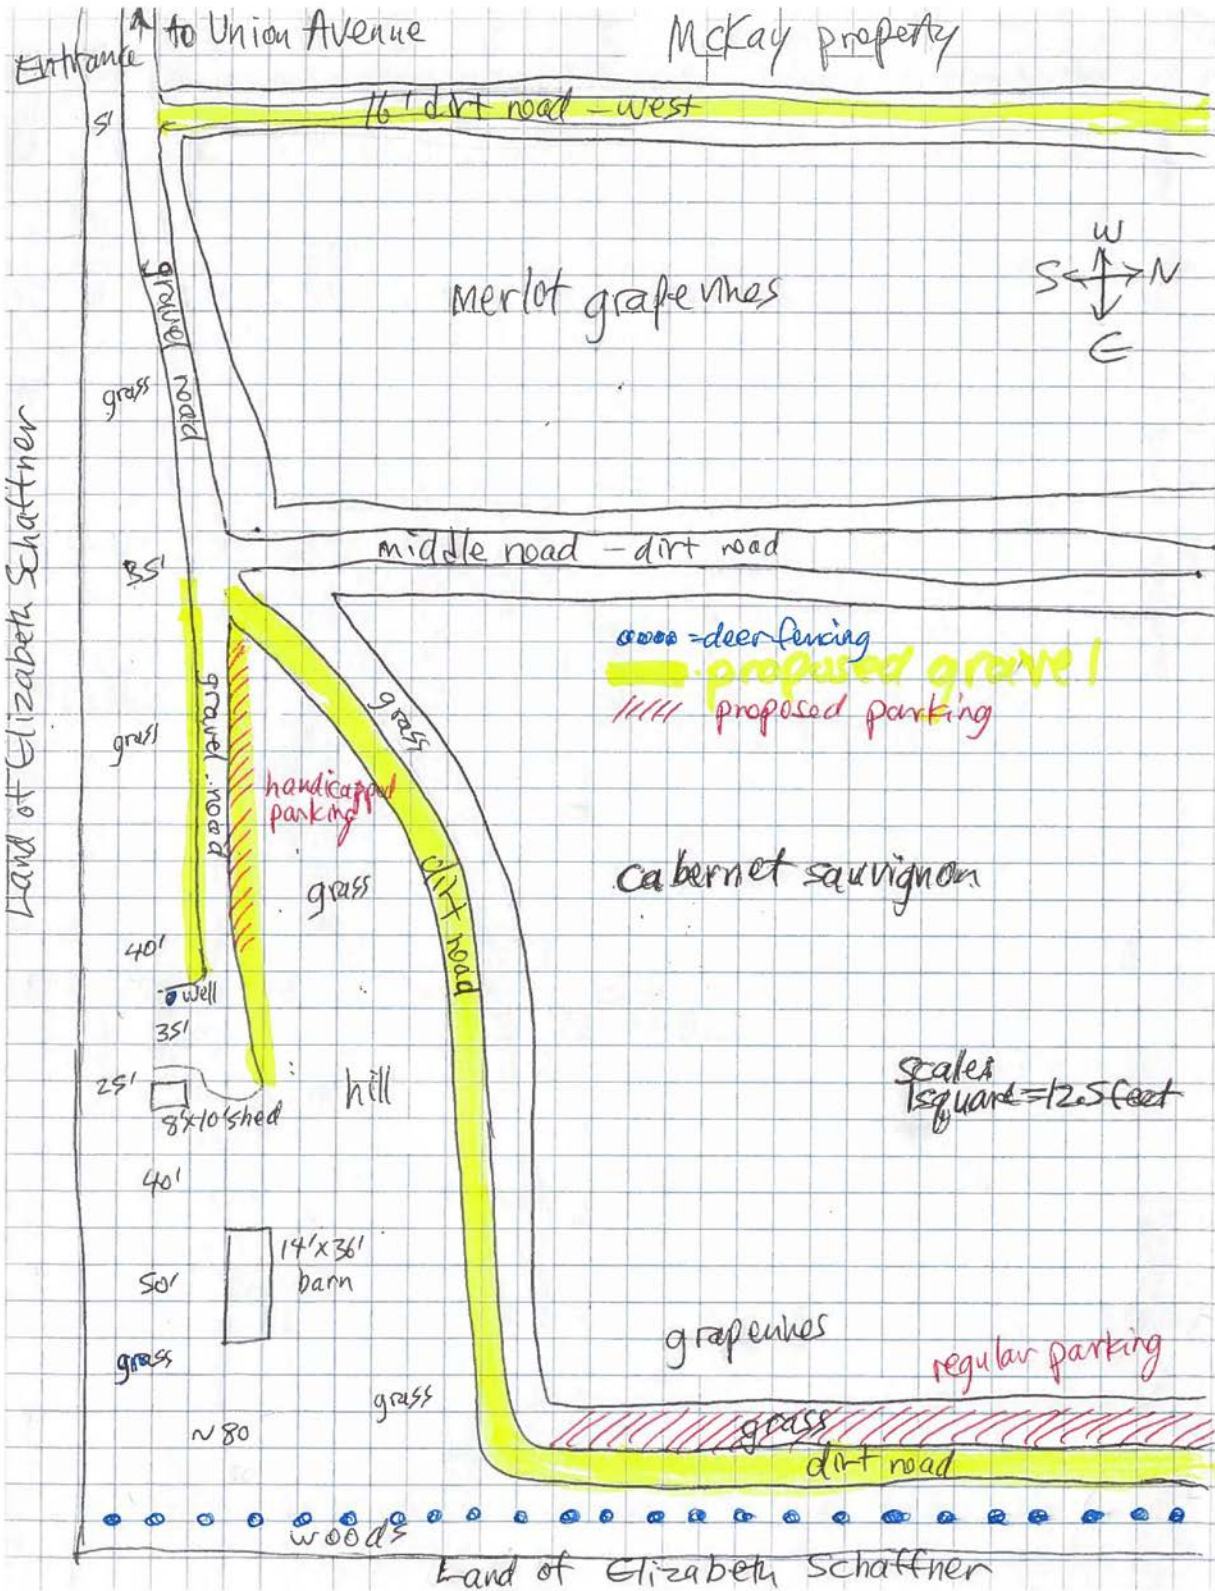 to Union Avenue
McKay property
Entrance
16' dirt road - west
5'
W
S N
E
merlot grapevines
gravel road
grass
Land of Elizabeth Schaffner
middle road - dirt road
35'
= deer fencing
proposed gravel
proposed parking
grass
grass
gravel road
handicapped
parking
cabernet sauvignon
grass
dirt road
40'
well
35'
25'
8'x10' shed
hill
scales
1 square = 12.5 feet
40'
14' x 36'
barn
50'
grapevines
regular parking
grass
grass
grass
~80
dirt road
woods
Land of Elizabeth Schaffner